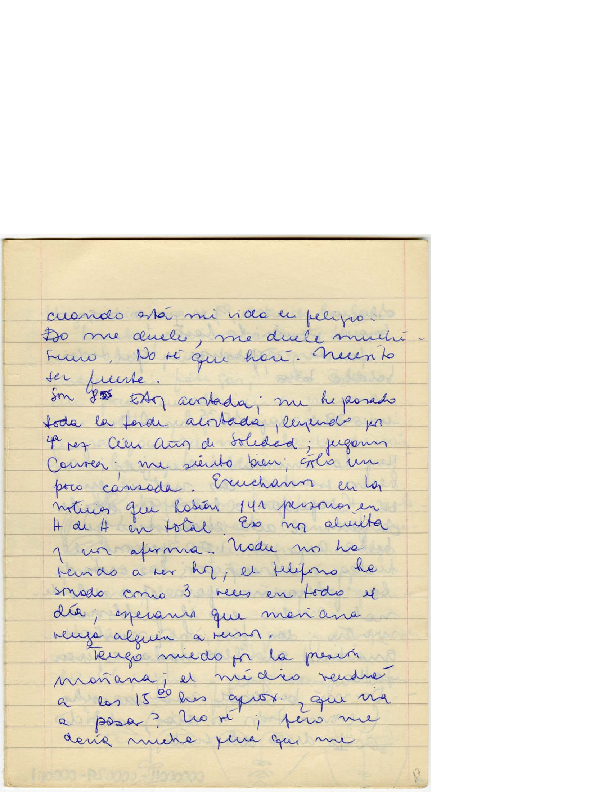 cuando está mi vida en peligro.
Eso me duele, me duele muchí-
simo. No sé que haré. Necesito
ser fuerte.
Son 8:55 Estoy acostada; me he pasado
toda la tarde acostada, leyendo por
4ª vez Cien Años de Soledad; jugamos
Carrera; me siento bien, sólo un
poco cansada. Escuchamos en las
noticias que habían 141 personas en
H de H en total. Eso nos alienta
y nos afirma. Nadie nos ha
venido a ver hoy; el teléfono ha
sonado como 3 veces en todo el
día, esperamos que mañana
venga alguien a vernos.
Tengo miedo por la presión
mañana; el médico vendrá
a las 15 00 hrs aprox. ¿que irá
a pasar? No sé; pero me
daría mucha pena que me